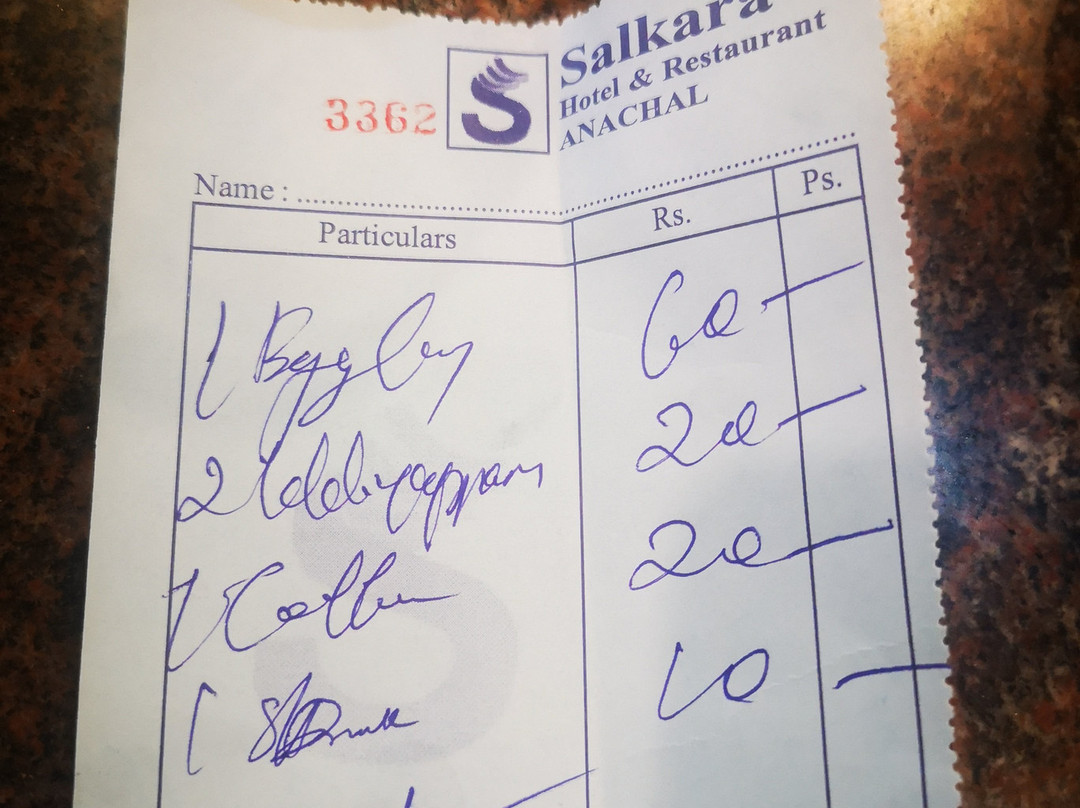 Salkara
Hotel & Restaurant
3362 S
ANACHAL
Name :
Particulars Rs. Ps.
1 60 -
2 20 -
1 Coffee 20 -
1 10 -